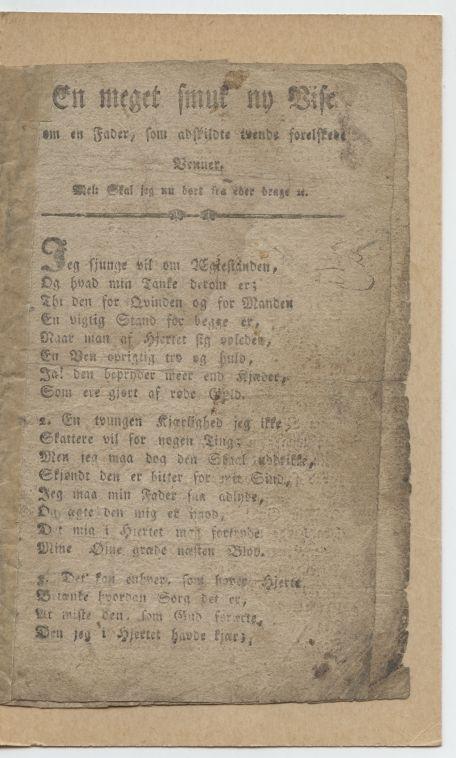 En meget smuk ny Vise
om en Fader, som adskildte tvende forelskede
Venner.
Mel: Skal jeg nu bort fra eder drage ꝛc.
Jeg sjunge vil om Ægtestanden,
Og hvad min Tanke derom er;
Thi den for Qvinden og for Manden
En vigtig Stand for begge er,
Naar man af Hjertet sig
En Ven oprigtig tro og huld,
Ja! den bepryder meer end Kjæder,
Som ere gjort af røde Guld.
2. En tvungen Kjærlighed jeg ikke
Skattere vil for nogen Ting;
Men jeg maa dog den Skaal uddrikke,
Skjøndt den er bitter for mit Sind,
Jeg maa min Fader saa adlyde,
Og ægte den mig er
Det mig i Hjertet maa fortryde
Mine Øine græde næsten Blod.
3. Det kan enhver, som haver Hjerte
Betænke hvordan Sorg det er,
At miste den, som Gud
Den jeg i Hjertet havde kjær;